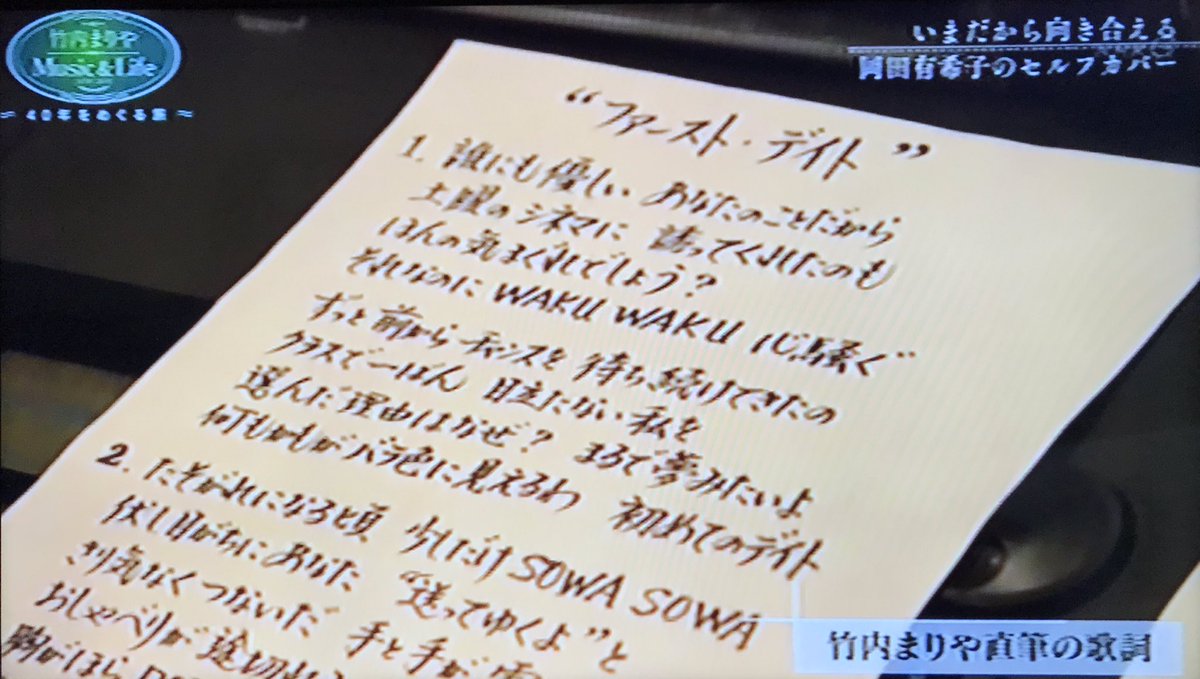 竹内まりや
Music&Life
～ 40年をめぐる旅 ～
いまだから向き合える
岡田有希子のセルフカバー
“ファースト・デイト”
1. 誰にも優しい あなたのことだから
土曜のシネマに 誘ってくれたのも
ほんの気まぐれでしょう?
それなのに WAKU WAKU 心騒ぐ
ずっと前から チャンスを 待ち続けてきたの
クラスで一ばん 目立たない 私を
選んだ理由はなぜ? まるで夢みたいよ
何もかもがバラ色に見えるわ 初めてのデイト
2. たそがれになる頃 少しだけ SOWA SOWA
伏し目がちにあなた “送ってゆくよ”と
さり気なくつないだ 手と手が
おしゃべりが 途切れ
胸がほら
竹内まりや直筆の歌詞